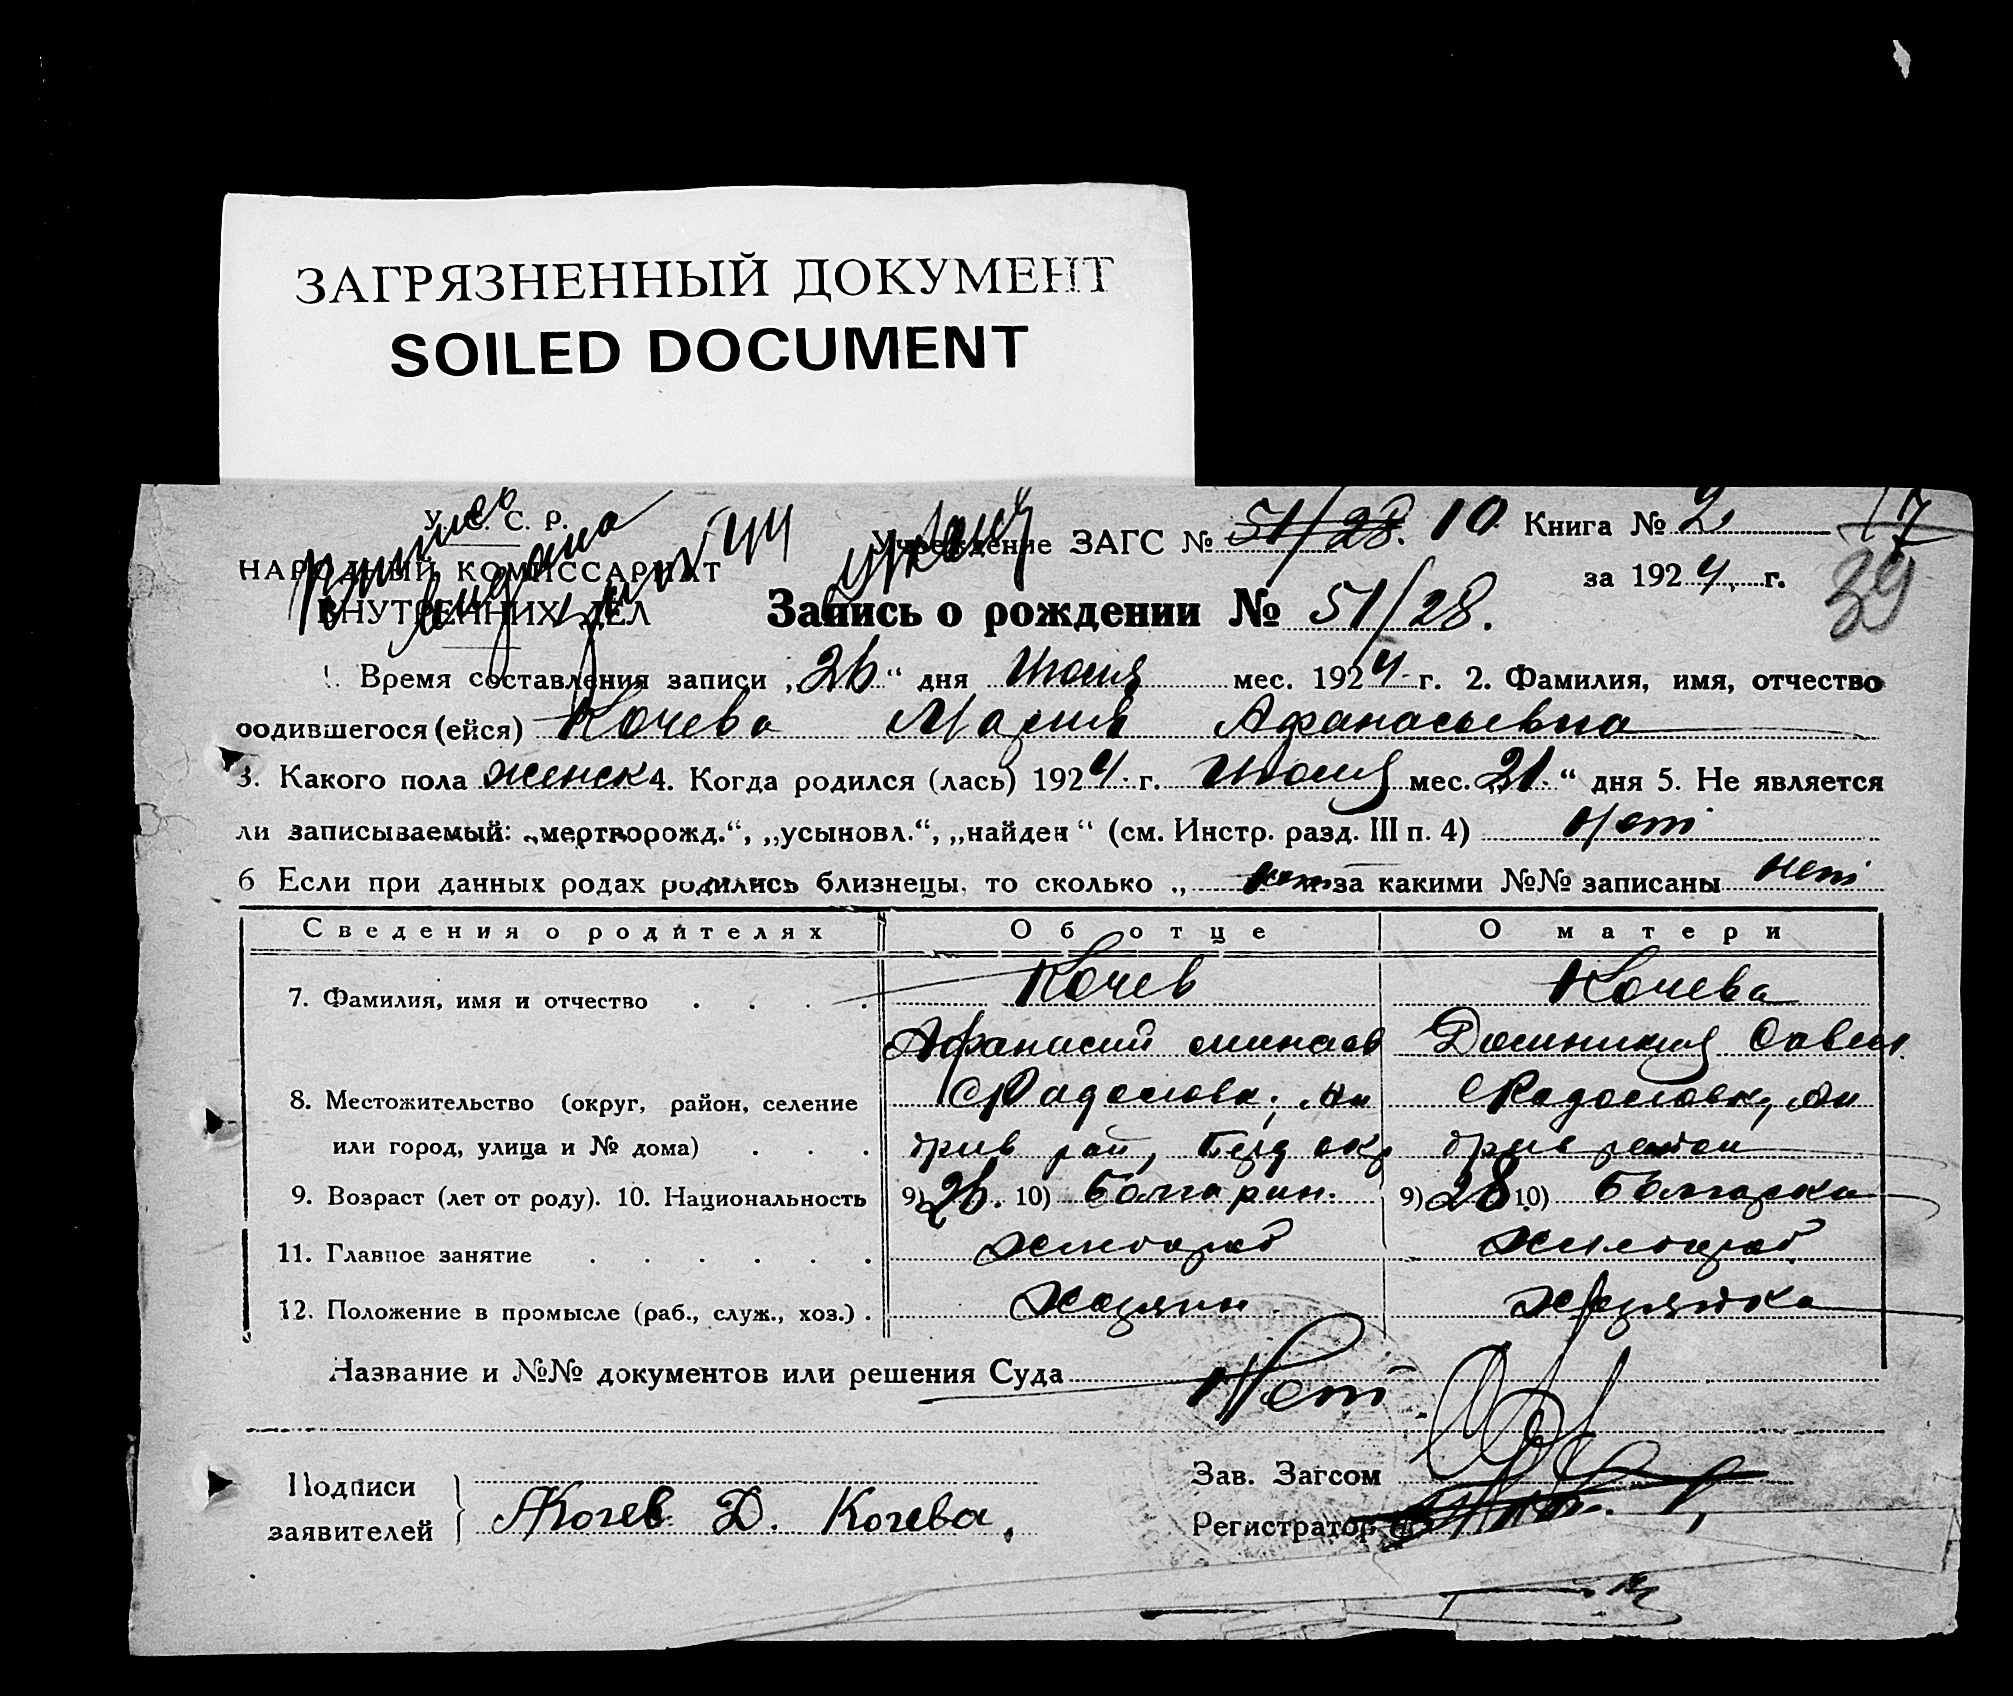 ЗАГРЯЗНЕННЫЙ ДОКУМЕНТ
SOILED DOCUMENT
У. С. С. Р.
НАРОДНЫЙ КОМИССАРИАТ
ВНУТРЕННИХ ДЕЛ
Учреждение ЗАГС № 51/28. 10 Книга № 2 17
за 1924 г. 39
Запись о рождении № 51/28.
1. Время составления записи „26“ дня Июля мес. 1924 г. 2. Фамилия, имя, отчество
родившегося (ейся) Кочева Мария Афанасьевна
3. Какого пола женск 4. Когда родился (лась) 1924 г. Июля мес. „21“ дня 5. Не является
ли записываемый: „мертворожд.“, „усыновл.“, „найден“ (см. Инстр. разд. III п. 4) Нет
6 Если при данных родах родились близнецы, то сколько „ нет за какими №№ записаны нет
Сведения о родителях Об отце О матери
7. Фамилия, имя и отчество . . . . Кочев Кочева
Афанасий Минаев Доминикия Савел.
8. Местожительство (округ, район, селение С Радоловка, Ан С Радоловка, Ан
или город, улица и № дома) . . . дрив рай, Берд окр дрив район
9. Возраст (лет от роду). 10. Национальность 9) 26. 10) Болгарин. 9) 28 10) Болгарка
11. Главное занятие . . . . . . хлебороб хлебороб
12. Положение в промысле (раб., служ., хоз.) . Хозяин Хозяйка
Название и №№ документов или решения Суда Нет
Подписи заявителей А Кочев Д. Кочева.
Зав. Загсом
Регистратор